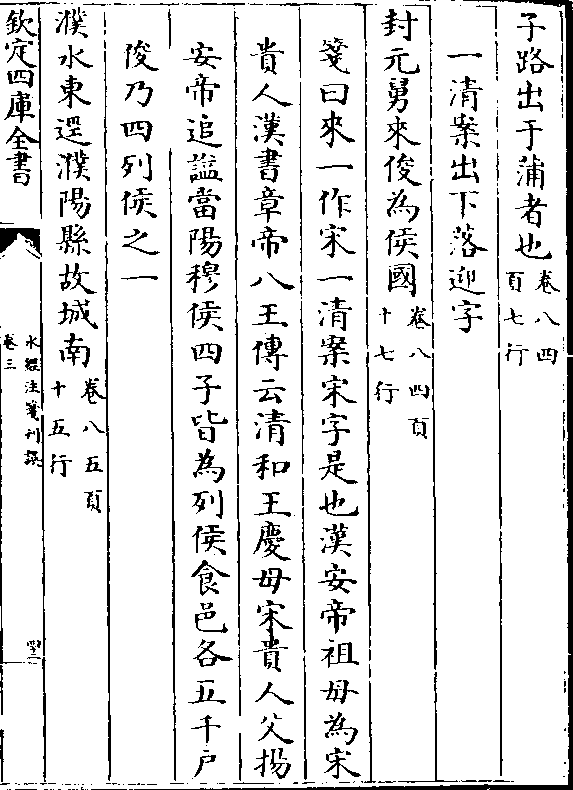 子路出于蒲者也卷八四頁七行
一清案出下落迎字
封元舅宋俊為侯國卷八四頁十七行
箋曰來一作宋一清案宋字是也漢安帝祖母為宋
貴人漢書章帝八王傳云清和王慶母宋貴人父揚
安帝追諡當陽穆侯四子皆為列侯食邑各五千戶
俊乃四列侯之一
濮水東逕濮陽縣故城南卷八五頁十五行
欽定四庫全書
水經注箋刊誤
卷三